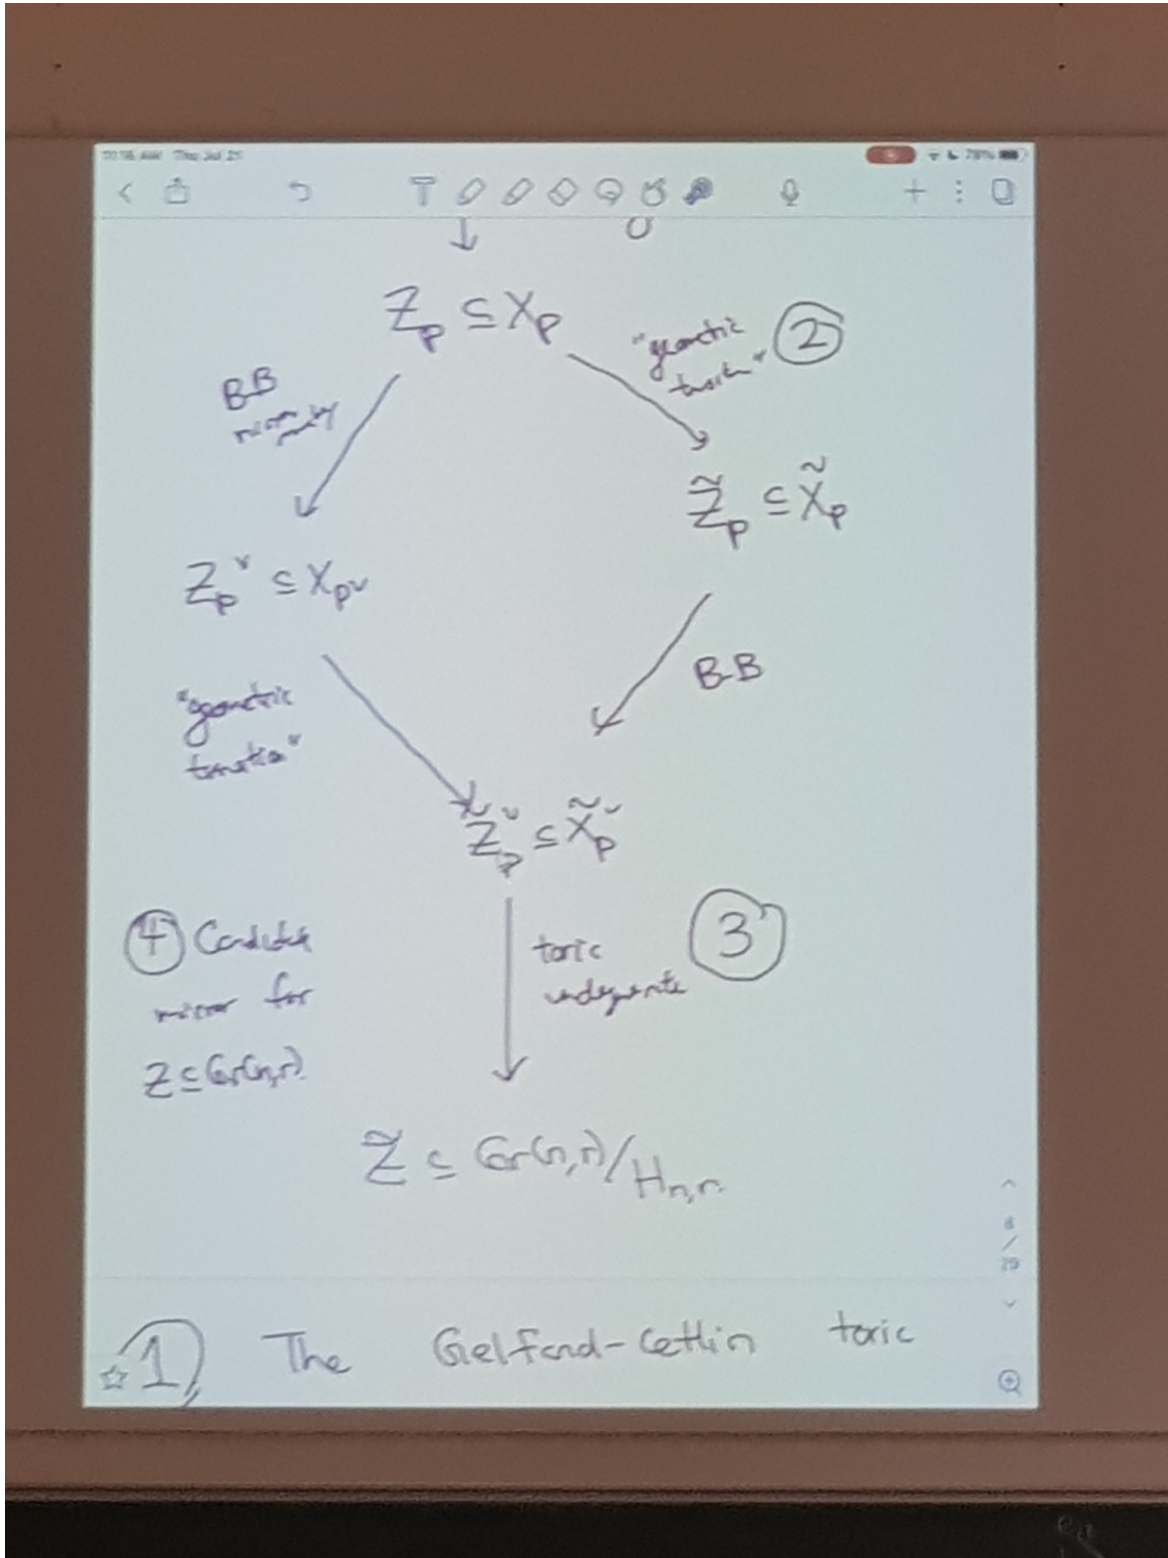 Thu Jul 21
79%
Z_P ⊆ X_P
"geometric
transition" ②
B-B
mirror
Z̃_P ⊆ X̃_P
Z_P^∨ ⊆ X_{P^∨}
B-B
"geometric
transition"
Z̃_P^∨ ⊆ X̃_P^∨
④ Candidate
mirror for
Z ⊆ Gr(n,r).
toric
undegenerate ③
Z̃ ⊆ Gr(n,r)/H_{n,r}.
8
/
29
1) The Gelfand-Cetlin toric